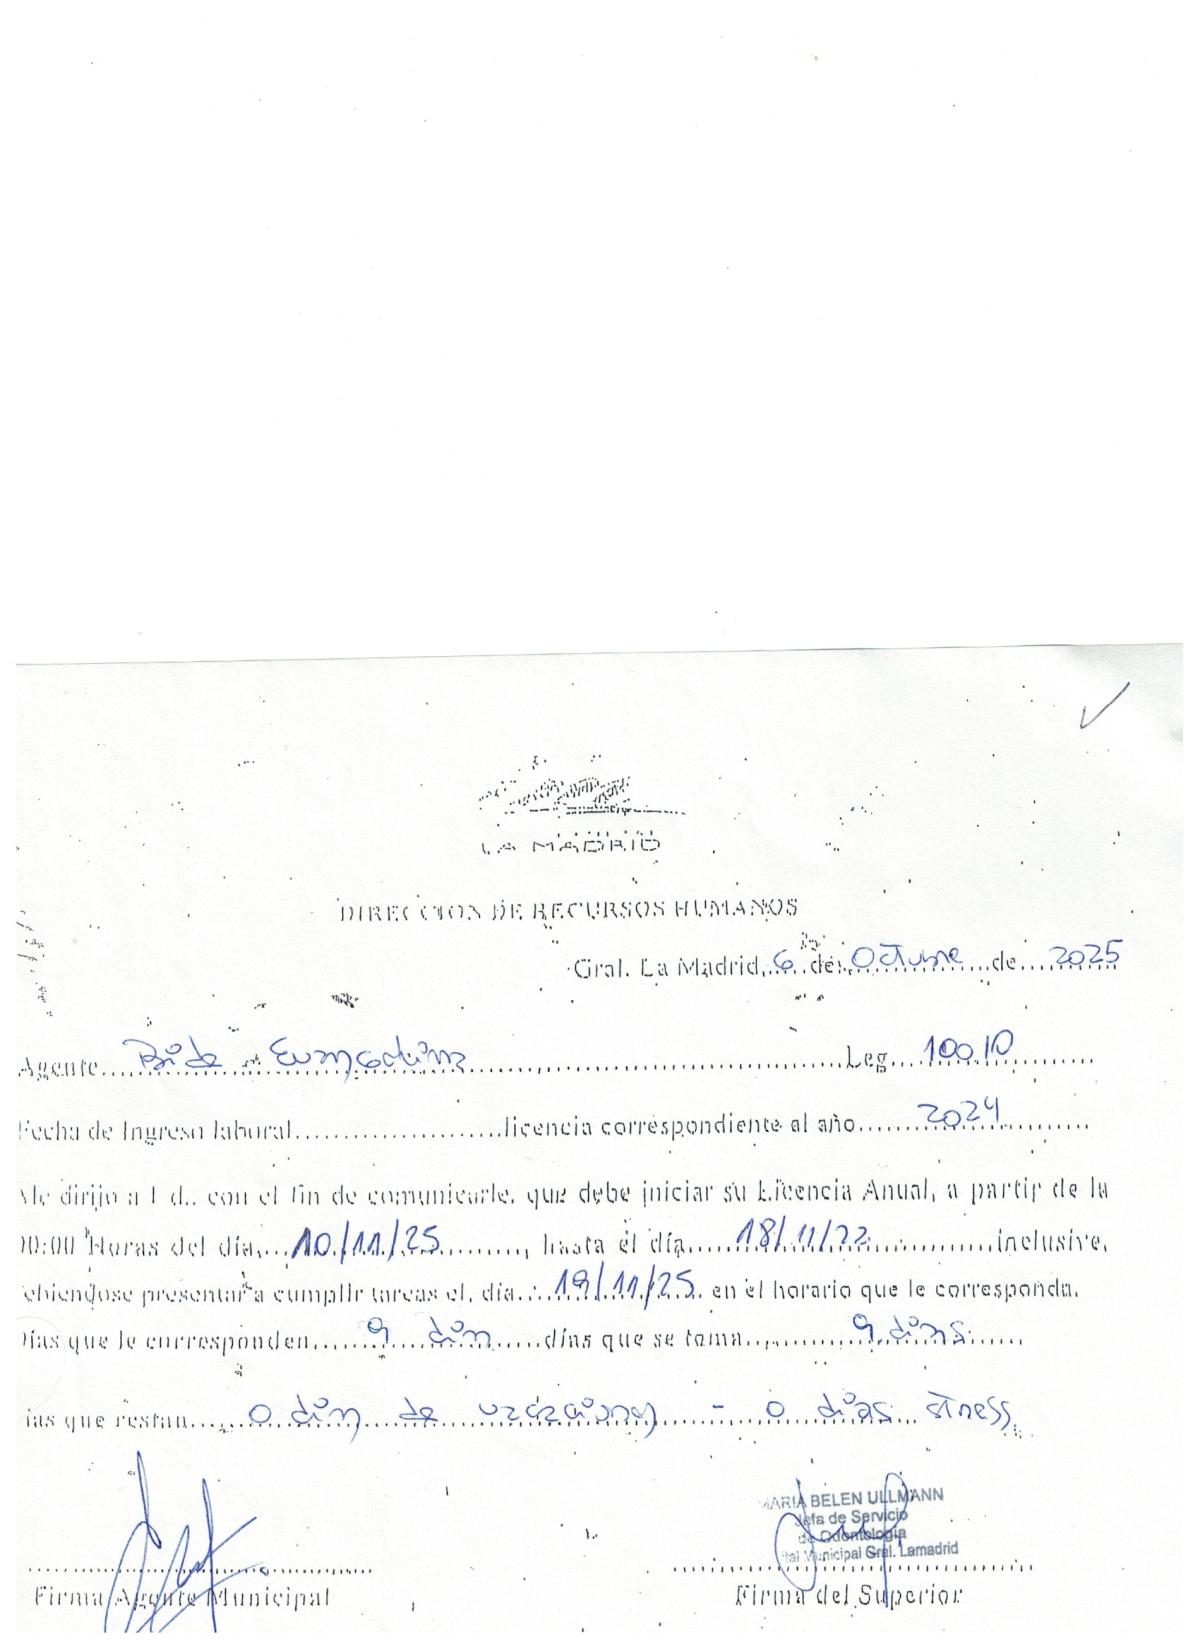 LA MADRID
DIRECCION DE RECURSOS HUMANOS
Gral. La Madrid, 6 de Octubre de 2025
Agente Leg 10010
Fecha de Ingreso laboral licencia correspondiente al año 2024
Me dirijo a Ud., con el fin de comunicarle, que debe iniciar su Licencia Anual, a partir de la
00:00 Horas del día 10/11/25, hasta el día 18/11/22 inclusive,
ebiendose presentar a cumplir tareas el, día 19/11/25 en el horario que le corresponda.
Días que le corresponden 9 días que se toma 9 dias
ias que restan 0 de vacaciones - 0 dias stress
MARIA BELEN ULLMANN
Jefa de Servicio
de Odontología
ital Municipal Gral. Lamadrid
Firma Agente Municipal Firma del Superior